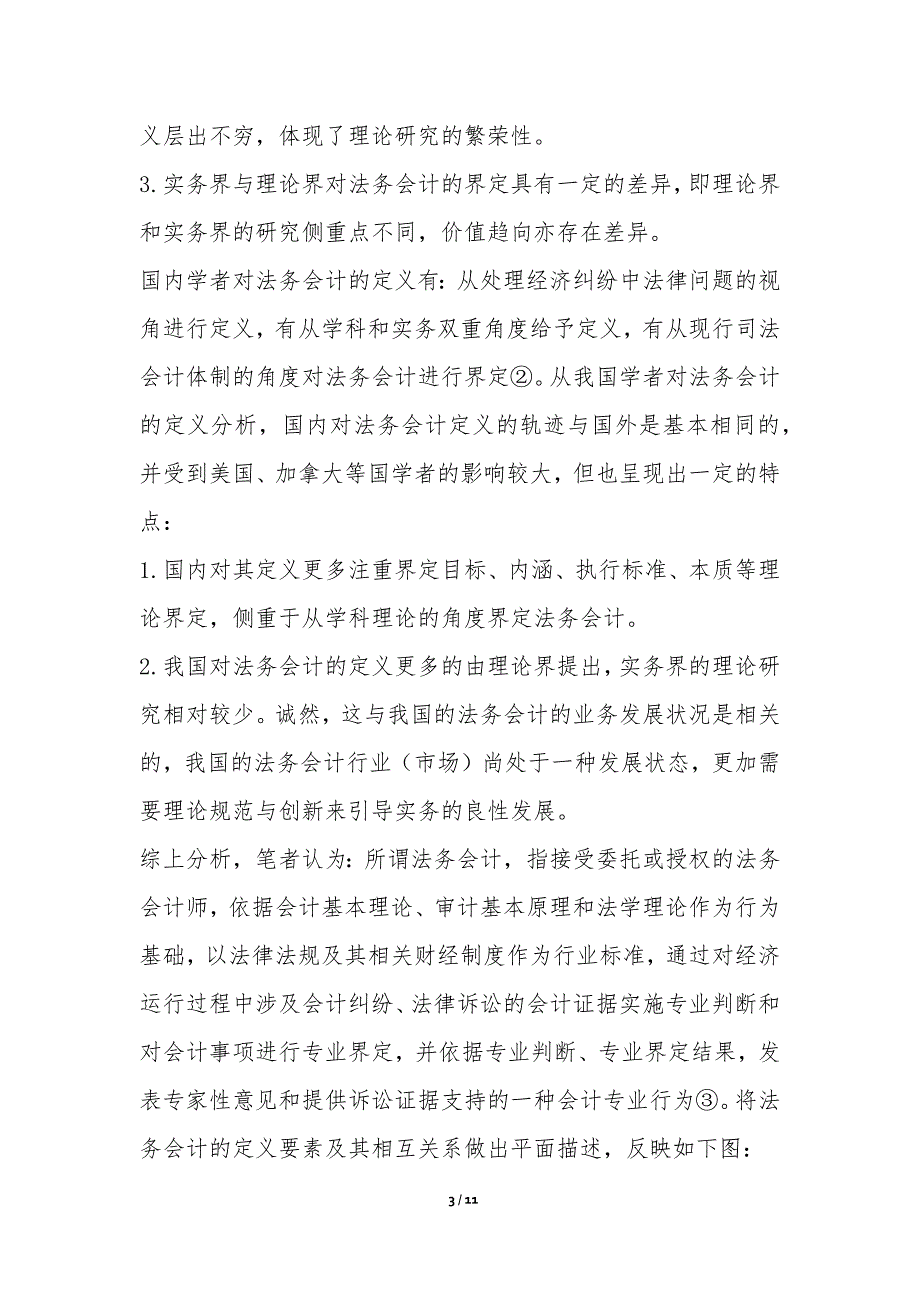 义层出不穷，体现了理论研究的繁荣性。
3. 实务界与理论界对法务会计的界定具有一定的差异，即理论界
和实务界的研究侧重点不同，价值趋向亦存在差异。
国内学者对法务会计的定义有：从处理经济纠纷中法律问题的视
角进行定义，有从学科和实务双重角度给予定义，有从现行司法
会计体制的角度对法务会计进行界定②。从我国学者对法务会计
的定义分析，国内对法务会计定义的轨迹与国外是基本相同的，
并受到美国、加拿大等国学者的影响较大，但也呈现出一定的特
点：
1. 国内对其定义更多注重界定目标、内涵、执行标准、本质等理
论界定，侧重于从学科理论的角度界定法务会计。
2. 我国对法务会计的定义更多的由理论界提出，实务界的理论研
究相对较少。诚然，这与我国的法务会计的业务发展状况是相关
的，我国的法务会计行业（市场）尚处于一种发展状态，更加需
要理论规范与创新来引导实务的良性发展。
综上分析，笔者认为：所谓法务会计，指接受委托或授权的法务
会计师，依据会计基本理论、审计基本原理和法学理论作为行为
基础，以法律法规及其相关财经制度作为行业标准，通过对经济
运行过程中涉及会计纠纷、法律诉讼的会计证据实施专业判断和
对会计事项进行专业界定，并依据专业判断、专业界定结果，发
表专家性意见和提供诉讼证据支持的一种会计专业行为③。将法
务会计的定义要素及其相互关系做出平面描述，反映如下图：
3 / 11